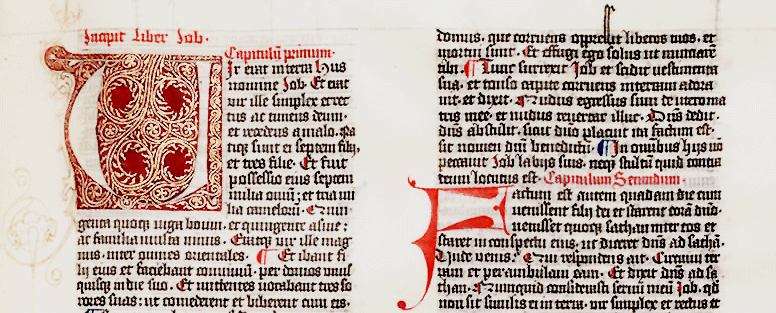 Incipit Liber Job.
Capitulū primum.
Ir erat in terra Hus
nomine Job. Et erat
vir ille simplex et rec
tus ac timens deum:
et recedens a malo. Na
tiqȝ sunt ei septem filij,
et tres filie. Et fuit
possessio eius septem
milia oviū: et tria mi
lia camelorū. Quin
genta quoqȝ iuga bovum. et quingente asine:
ac familia multa nimis. Eratqȝ vir ille mag
nus. inter omnes orientales. ¶ Et ibant fi
lij eius et faciebant convivium. per domos unus
quisqȝ in die suo. Et mittentes vocabant tres so
rores suas: ut comederent et biberent cum eis.
domus. que corruens oppressit liberos tuos. et
mortui sunt. Et effugi ego solus ut nunciarem
tibi. ¶ Tunc surrexit Job et scidit vestimenta
sua. et tonso capite corruens in terram adora
vit. et dixit. Nudus egressus sum de utero ma
tris mee. et nudus revertar illuc. Dn̄s dedit.
dn̄s abstulit. sicut dn̄o placuit ita factum est.
sit nomen dn̄i benedictū. ¶ In omnibus hijs nō
peccavit Job labijs suis. neqȝ stultū quid contra
deum locutus est. Capitulum Secundum.
Factum est autem quadam die cum
venissent filij dei et starent corā dn̄o.
venisset quoqȝ sathan inter eos et
staret in conspectu eius. ut diceret dn̄s ad sathā.
Unde venis? Qui respondens ait. Circuivi ter
ram et perambulavi eam. Et dixit dn̄s ad sa
than. Nunquid considerasti servū meū Job. qꝫ
non sit similis ei in terra. vir simplex et rectus et